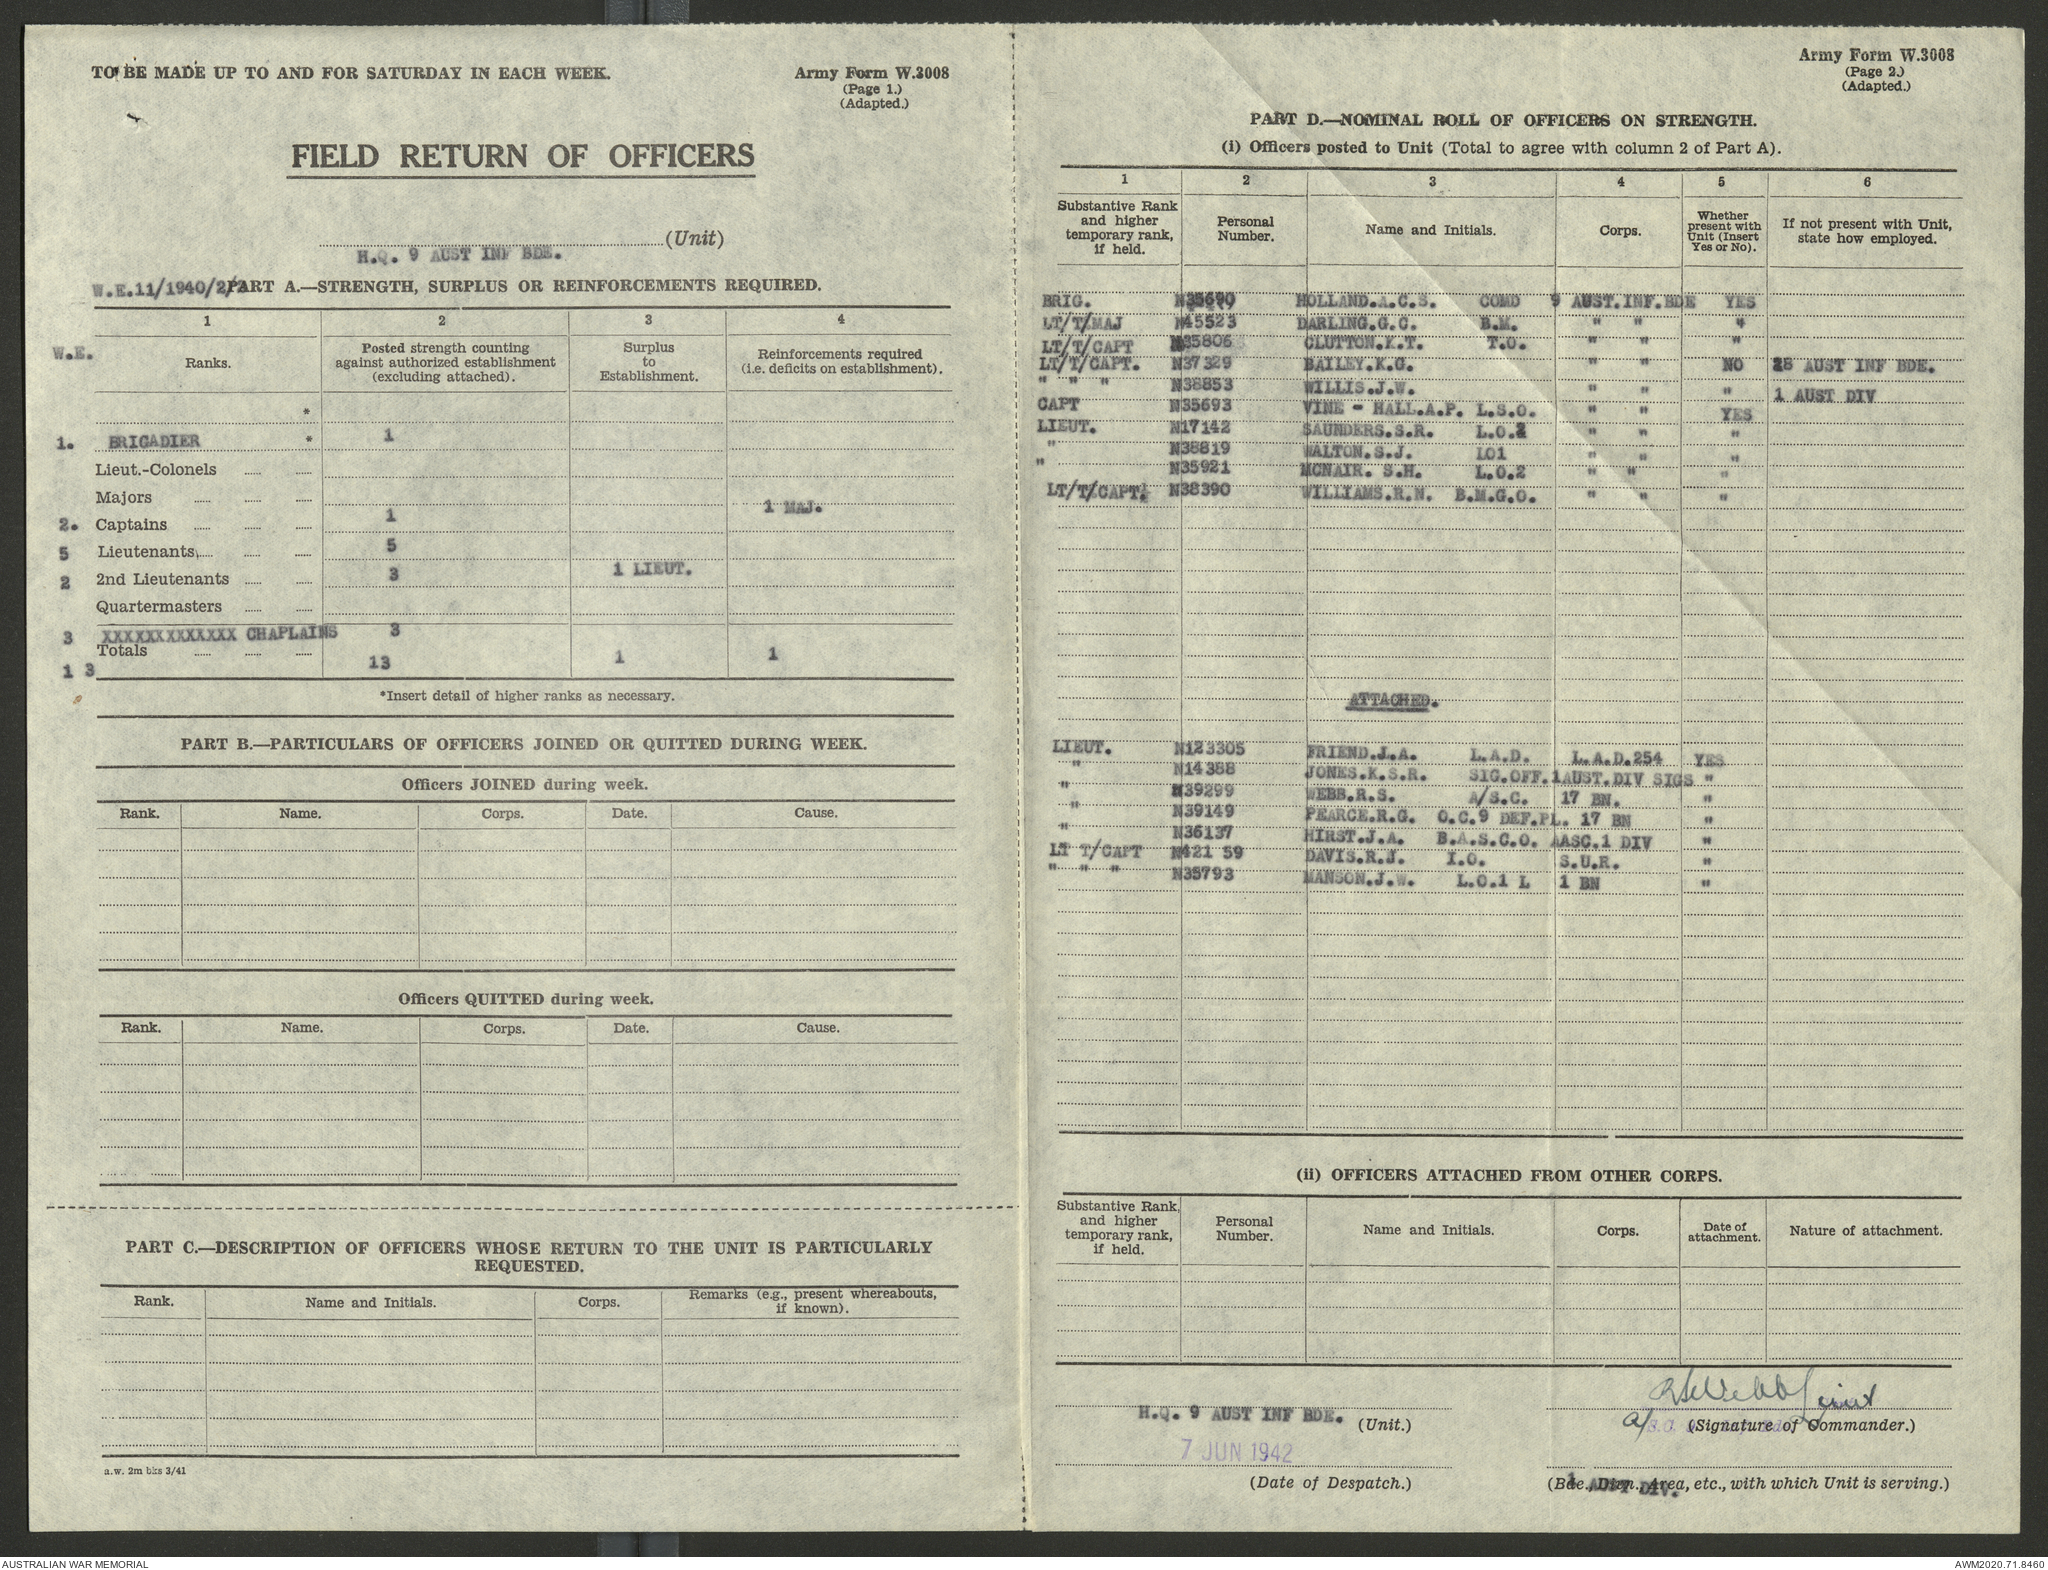 TO BE MADE UP TO AND FOR SATURDAY IN EACH WEEK.
Army Form W.3008
(Page 1.)
(Adapted.)
FIELD RETURN OF OFFICERS
(Unit)
H.Q. 9 AUST INF BDE.
W.E.11/1940/2/ PART A.—STRENGTH, SURPLUS OR REINFORCEMENTS REQUIRED.
1 2 3 4
W.E. Ranks. Posted strength counting against authorized establishment (excluding attached). Surplus to Establishment. Reinforcements required (i.e. deficits on establishment).
*
1. BRIGADIER * 1
Lieut.-Colonels
Majors 1 MAJ.
2. Captains 1
5 Lieutenants 5
2 2nd Lieutenants 3 1 LIEUT.
Quartermasters
3 XXXXXXXXXXXXX CHAPLAINS 3
Totals
1 3 13 1 1
*Insert detail of higher ranks as necessary.
PART B.—PARTICULARS OF OFFICERS JOINED OR QUITTED DURING WEEK.
Officers JOINED during week.
Rank. Name. Corps. Date. Cause.
Officers QUITTED during week.
Rank. Name. Corps. Date. Cause.
PART C.—DESCRIPTION OF OFFICERS WHOSE RETURN TO THE UNIT IS PARTICULARLY
REQUESTED.
Rank. Name and Initials. Corps. Remarks (e.g., present whereabouts, if known).
a.w. 2m bks 3/41
Army Form W.3008
(Page 2.)
(Adapted.)
PART D.—NOMINAL ROLL OF OFFICERS ON STRENGTH.
(i) Officers posted to Unit (Total to agree with column 2 of Part A).
1 2 3 4 5 6
Substantive Rank and higher temporary rank, if held. Personal Number. Name and Initials. Corps. Whether present with Unit (Insert Yes or No). If not present with Unit, state how employed.
BRIG. N35690 HOLLAND.A.C.S. COMD 9 AUST.INF.BDE YES
LT/T/MAJ N45523 DARLING.G.C. B.M. " " "
LT/T/CAPT N35806 CLUTTON.K.T. T.O. " " "
LT/T/CAPT. N37329 BAILEY.K.G. " " NO 28 AUST INF BDE.
" " " N38853 WILLIS.J.W. " " " 1 AUST DIV
CAPT N35693 VINE - HALL.A.P. L.S.O. " " YES
LIEUT. N17142 SAUNDERS.S.R. L.O.2 " " "
" N38819 WALTON.S.J. LO1 " " "
" N35921 MCNAIR. S.H. L.O.2 " " "
LT/T/CAPT. N38390 WILLIAMS.R.N. B.M.G.O. " " "
ATTACHED.
LIEUT. N123305 FRIEND.J.A. L.A.D. L.A.D.254 YES
" N14388 JONES.K.S.R. SIG.OFF.1AUST.DIV SIGS "
" N39299 WEBB.R.S. A/S.C. 17 BN. "
" N39149 PEARCE.R.G. O.C.9 DEF.PL. 17 BN "
" N36137 HIRST.J.A. B.A.S.C.O. AASC.1 DIV "
LT T/CAPT N421 59 DAVIS.R.J. I.O. S.U.R. "
" " " N35793 MANSON.J.W. L.O.1 L 1 BN "
(ii) OFFICERS ATTACHED FROM OTHER CORPS.
Substantive Rank, and higher temporary rank, if held. Personal Number. Name and Initials. Corps. Date of attachment. Nature of attachment.
RSWebb Lieut
H.Q. 9 AUST INF BDE. (Unit.) a/ (Signature of Commander.)
7 JUN 1942
(Date of Despatch.) (Bde., Divn., Area, etc., with which Unit is serving.)
1 AUST DIV.
AUSTRALIAN WAR MEMORIAL
AWM2020.71.8460